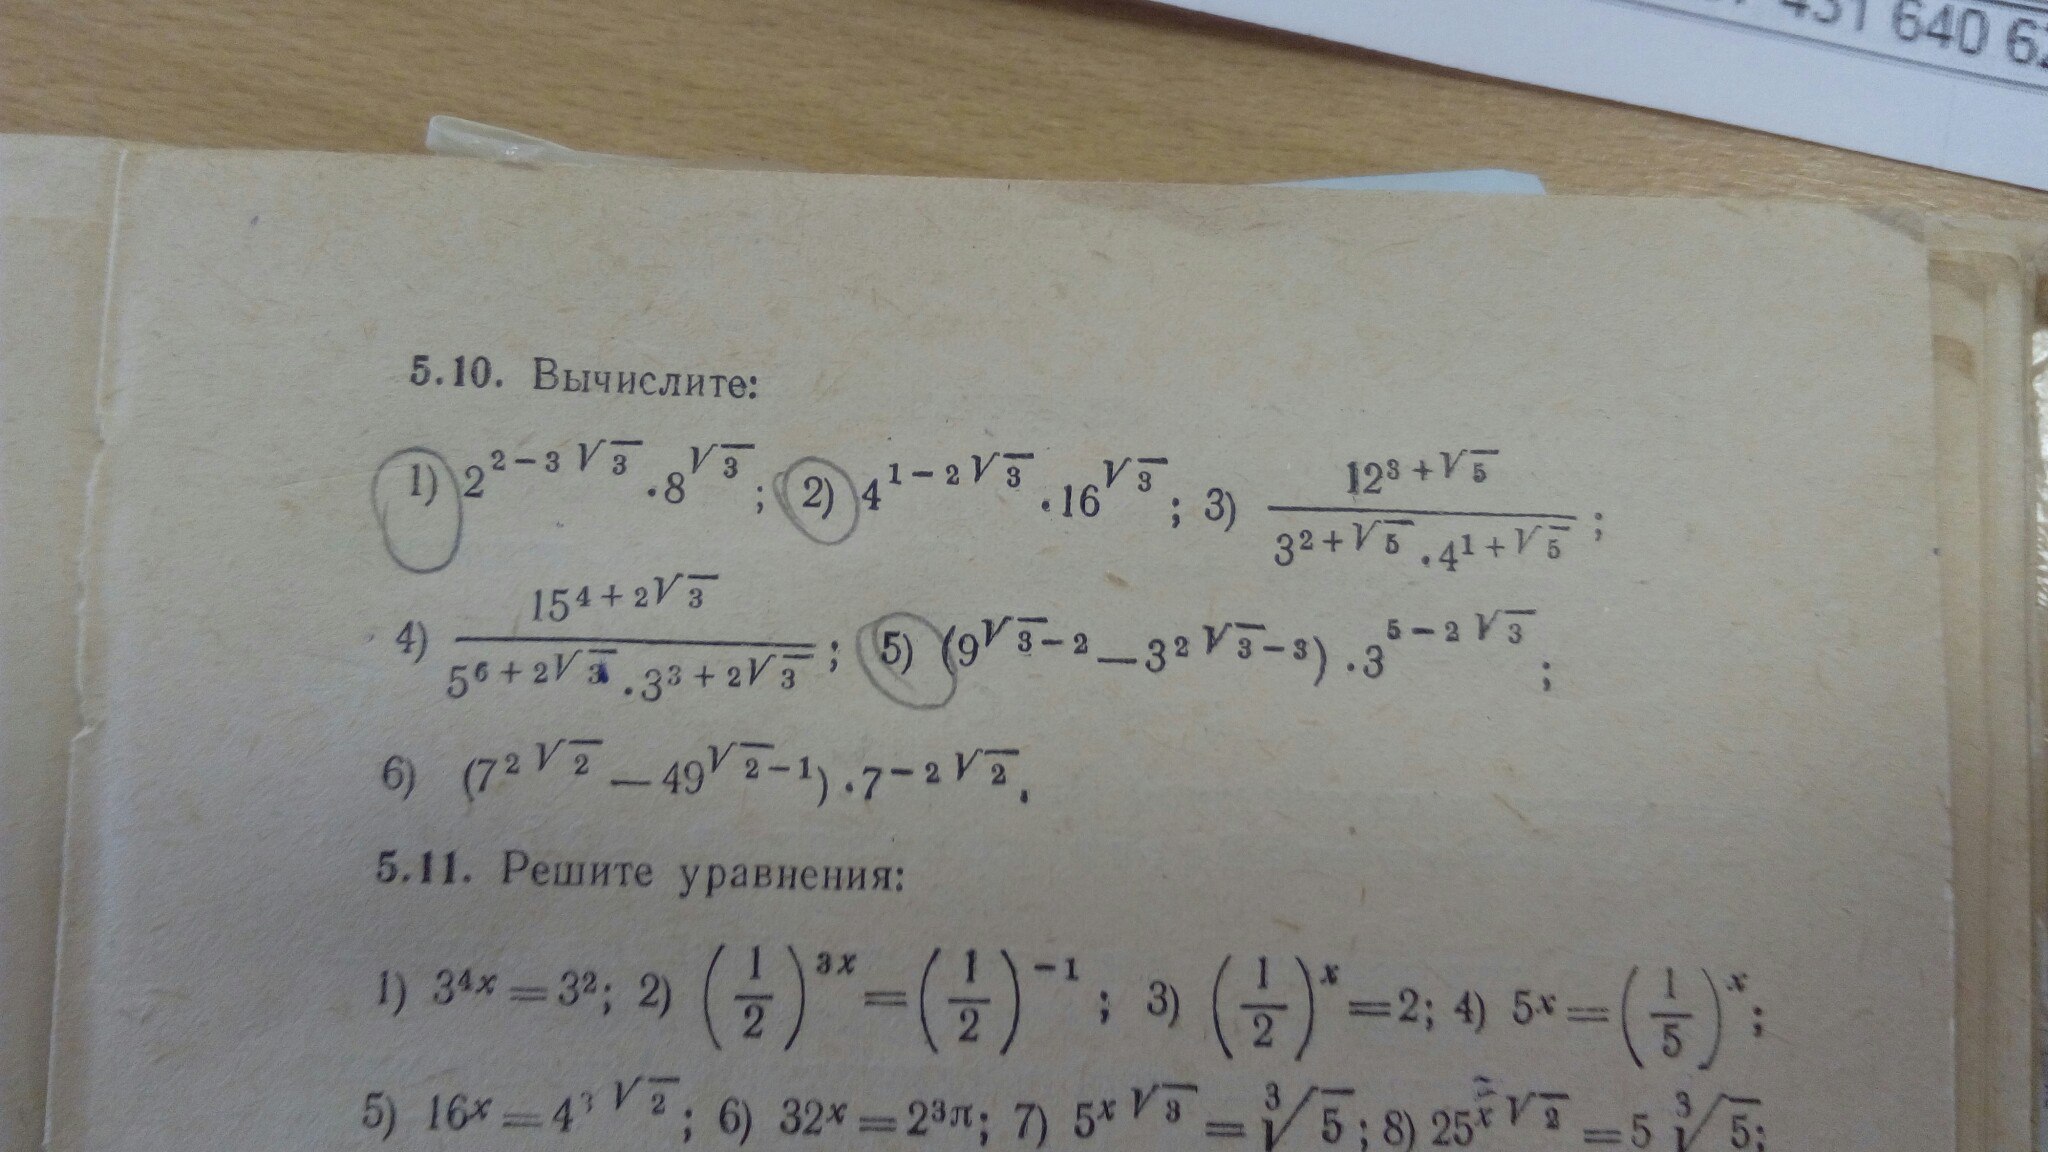 431 640 6
5.10. Вычислите:
1) 2^{2-3√3}·8^{√3}; 2) 4^{1-2√3}·16^{√3}; 3) \frac{12^{3+√5}}{3^{2+√5}·4^{1+√5}};
4) \frac{15^{4+2√3}}{5^{6+2√3}·3^{3+2√3}}; 5) (9^{√3-2}—3^{2√3-3})·3^{5-2√3};
6) (7^{2√2}—49^{√2-1})·7^{-2√2}.
5.11. Решите уравнения:
1) 3^{4x}=3^{2}; 2) (\frac{1}{2})^{3x}=(\frac{1}{2})^{-1}; 3) (\frac{1}{2})^{x}=2; 4) 5^{x}=(\frac{1}{5})^{x};
5) 16^{x}=4^{3√2}; 6) 32^{x}=2^{3π}; 7) 5^{x√3}=∛5; 8) 25^{x√3}=5∛5;